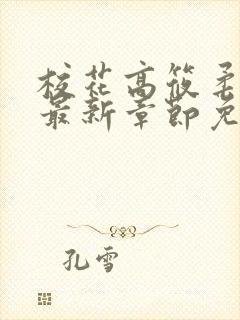 校花高筱柔
最新章節免
孔雪